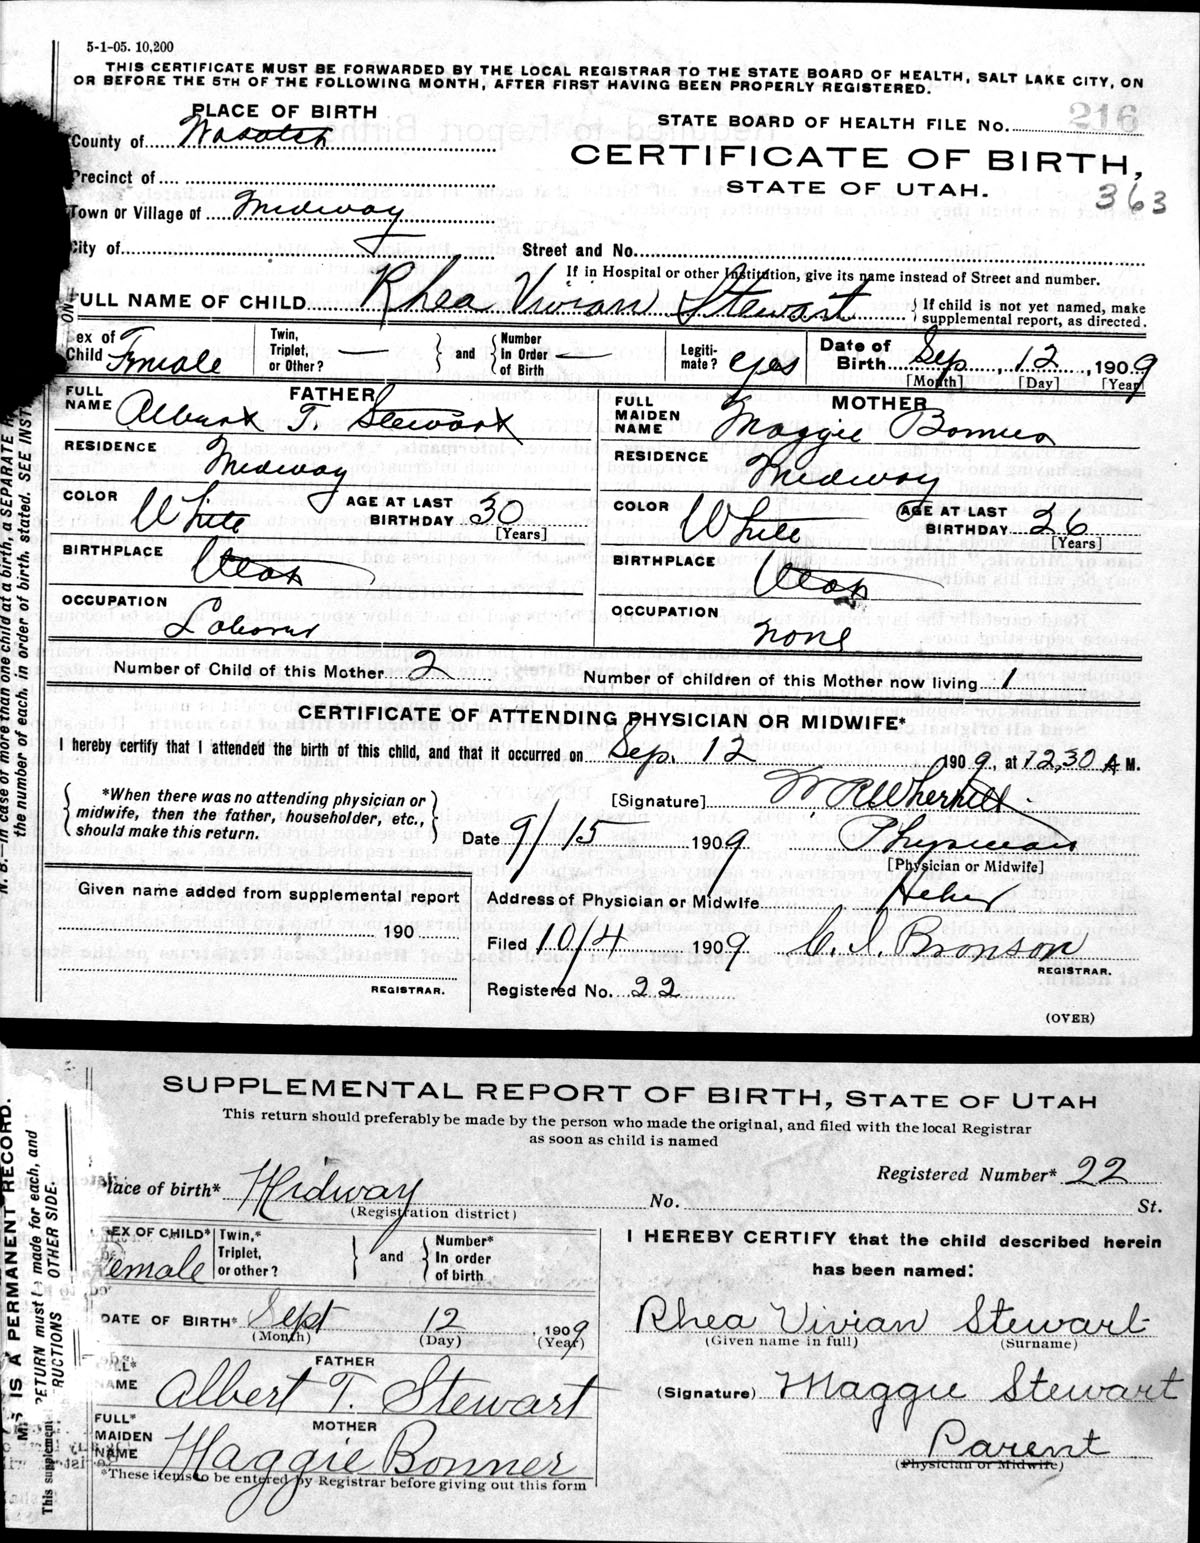 5-1-05. 10,200
THIS CERTIFICATE MUST BE FORWARDED BY THE LOCAL REGISTRAR TO THE STATE BOARD OF HEALTH, SALT LAKE CITY, ON
OR BEFORE THE 5TH OF THE FOLLOWING MONTH, AFTER FIRST HAVING BEEN PROPERLY REGISTERED.
PLACE OF BIRTH
STATE BOARD OF HEALTH FILE No. 216
County of Wasatch
CERTIFICATE OF BIRTH,
STATE OF UTAH.
363
Precinct of
Town or Village of Midway
City of
Street and No.
If in Hospital or other Institution, give its name instead of Street and number.
FULL NAME OF CHILD Rhea Vivian Stewart
If child is not yet named, make
supplemental report, as directed.
Sex of Child Female
Twin, Triplet, or Other? —
and
Number In Order of Birth —
Legiti-mate? yes
Date of Birth Sep. 12, 1909
[Month] [Day] [Year]
FATHER
FULL NAME Albert T. Stewart
RESIDENCE Midway
COLOR White
AGE AT LAST BIRTHDAY 30
[Years]
BIRTHPLACE Utah
OCCUPATION Laborer
MOTHER
FULL MAIDEN NAME Maggie
RESIDENCE Midway
COLOR White
AGE AT LAST BIRTHDAY 26
[Years]
BIRTHPLACE Utah
OCCUPATION none
Number of Child of this Mother 2
Number of children of this Mother now living 1
CERTIFICATE OF ATTENDING PHYSICIAN OR MIDWIFE*
I hereby certify that I attended the birth of this child, and that it occurred on Sep. 12 1909, at 12,30 A M.
*When there was no attending physician or
midwife, then the father, householder, etc.,
should make this return.
[Signature]
Date 9/15 1909
Physician
[Physician or Midwife]
Given name added from supplemental report
190
REGISTRAR.
Address of Physician or Midwife Heber
Filed 10/4 1909 Bronson
REGISTRAR.
Registered No. 22
(OVER)
N. B.—In case of more than one child at a birth, a SEPARATE
the number of each, in order of birth, stated. SEE INST
SUPPLEMENTAL REPORT OF BIRTH, STATE OF UTAH
This return should preferably be made by the person who made the original, and filed with the local Registrar
as soon as child is named
Registered Number* 22
Place of birth* Midway
No. St.
(Registration district)
SEX OF CHILD* Female
Twin,* Triplet, or other?
and
Number* In order of birth
DATE OF BIRTH* Sept 12, 1909
(Month) (Day) (Year)
FATHER
FULL* NAME Albert T. Stewart
MOTHER
FULL* MAIDEN NAME Maggie Bonner
*These items to be entered by Registrar before giving out this form
I HEREBY CERTIFY that the child described herein
has been named:
Rhea Vivian Stewart
(Given name in full) (Surname)
(Signature) Maggie Stewart
Parent
(Physician or Midwife)
IS A PERMANENT RECORD.
RETURN must be made for each, and
RUCTIONS OTHER SIDE.
This supplement